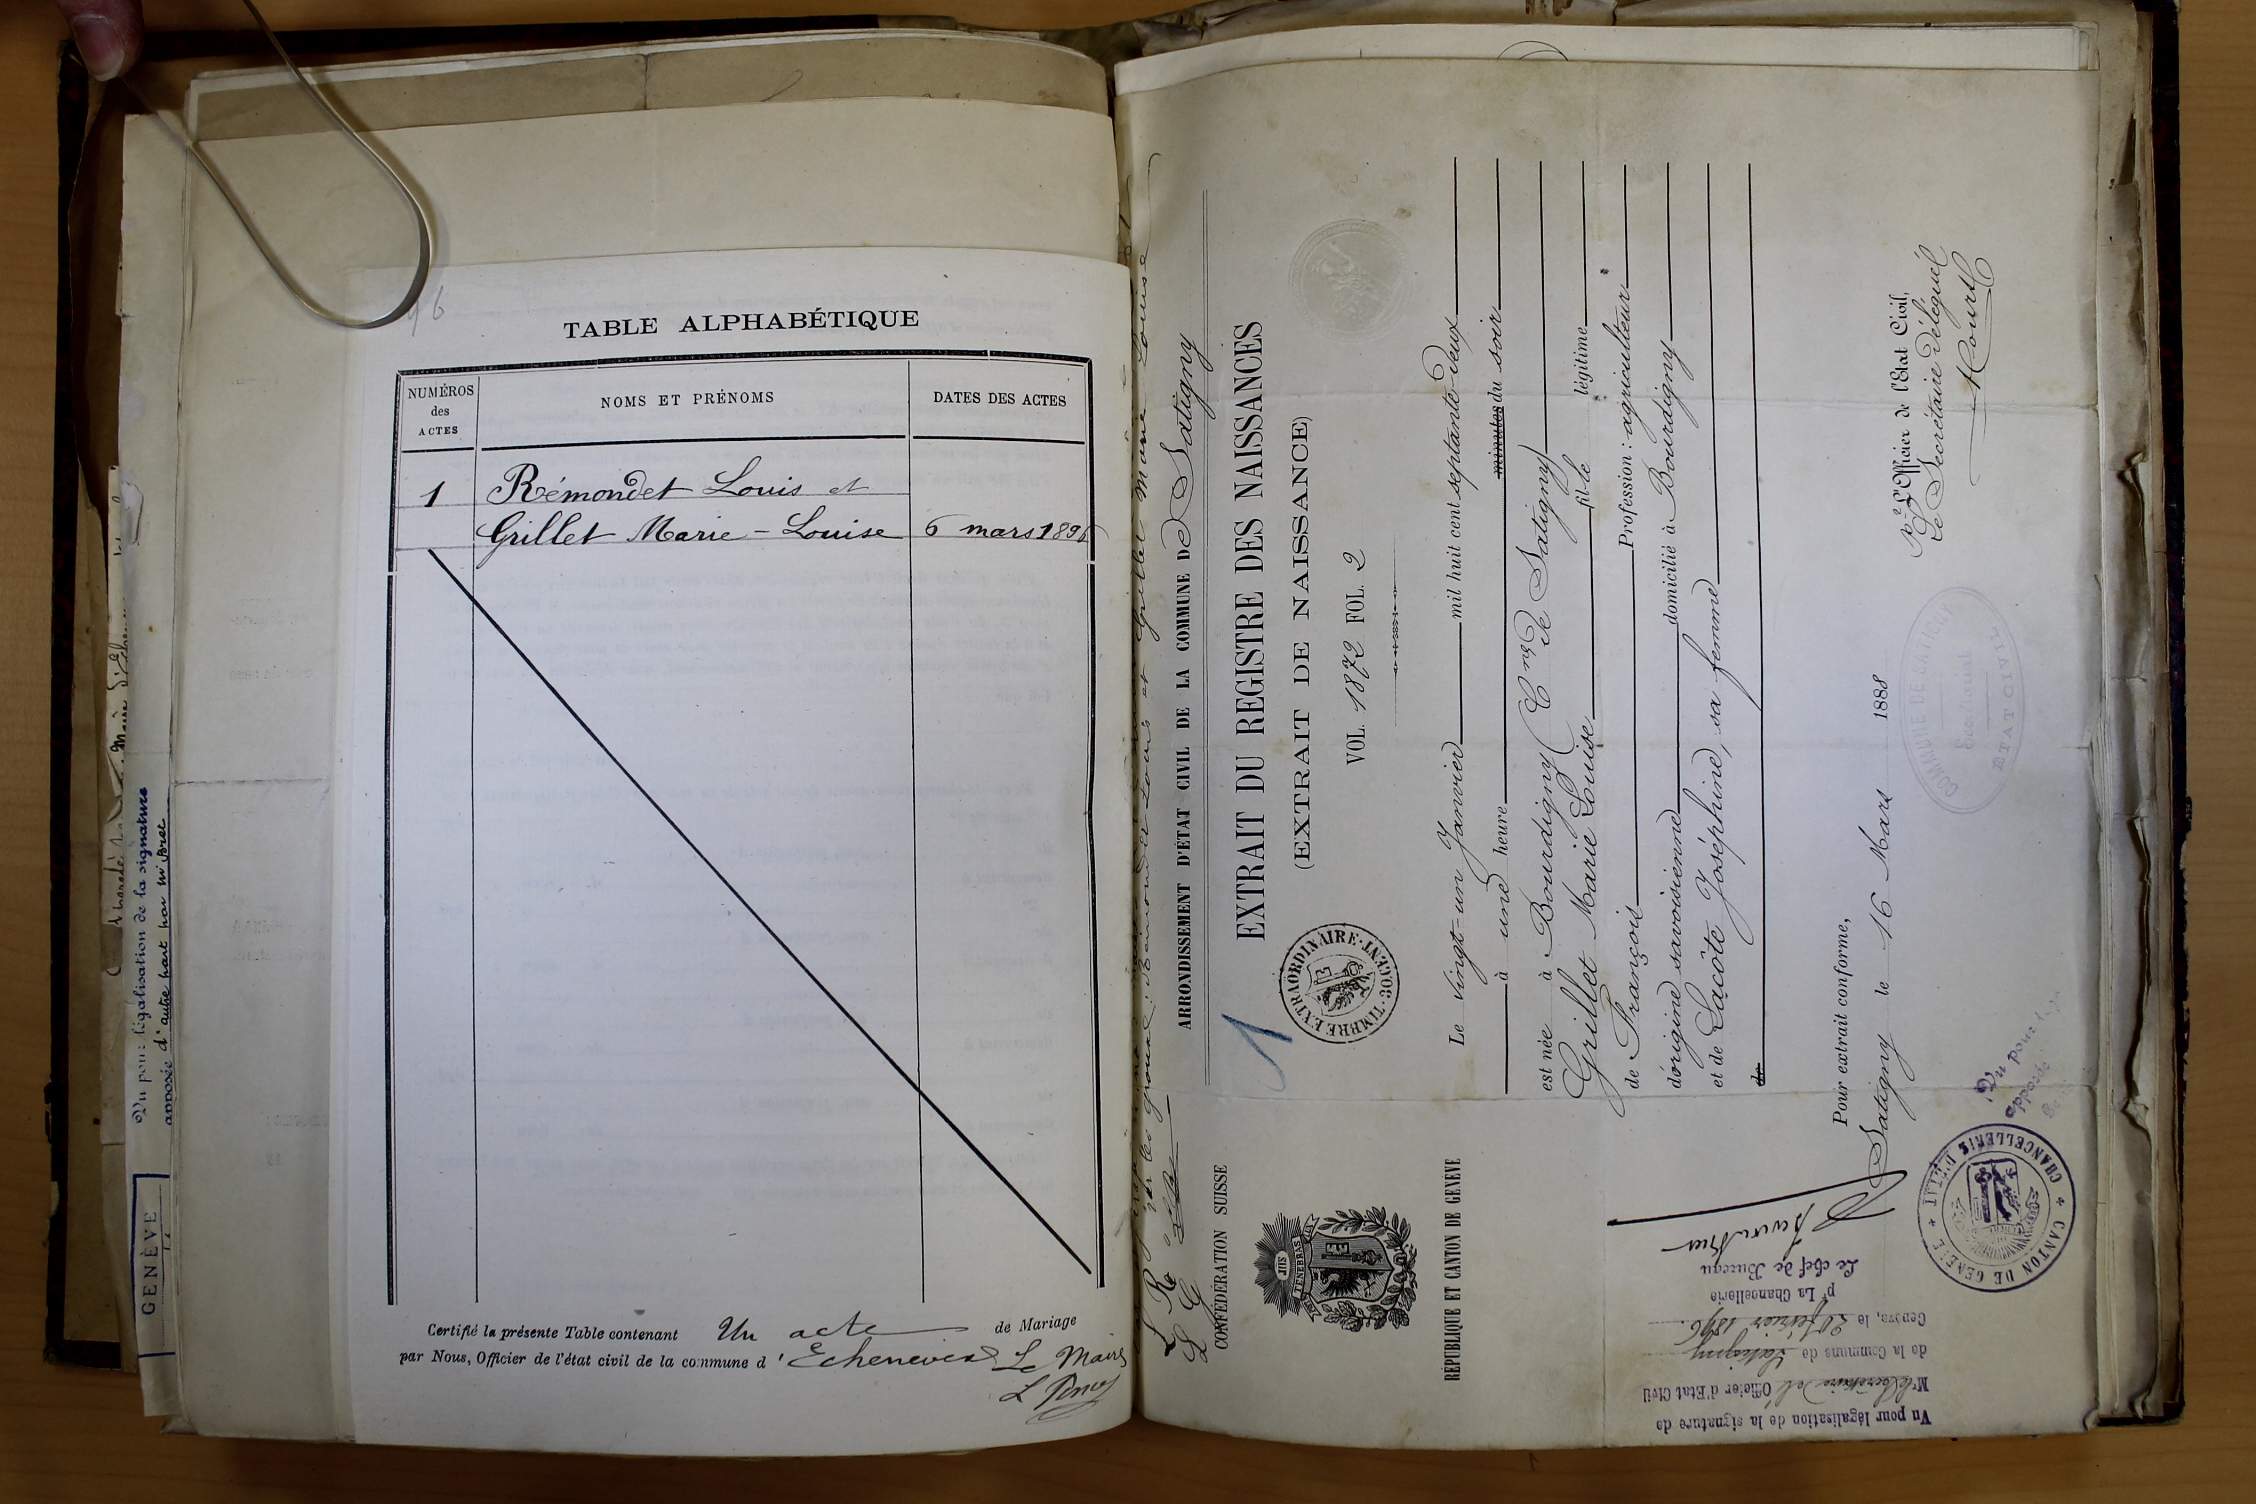 96
TABLE ALPHABÉTIQUE
NUMÉROS
des
ACTES
NOMS ET PRÉNOMS
DATES DES ACTES
1
Rémondet Louis et
Grillet Marie-Louise
6 mars 1896
Certifié la présente Table contenant Un acte de Mariage
par Nous, Officier de l'état civil de la commune d'Echenevex Le Maire
Vu pour légalisation de la signature
apposée d'autre part par
GENÈVE
ARRONDISSEMENT D'ÉTAT CIVIL DE LA COMMUNE DE Satigny
EXTRAIT DU REGISTRE DES NAISSANCES
(EXTRAIT DE NAISSANCE)
VOL. 1872 FOL. 2
TIMBRE EXTRAORDINAIRE · 30 CENT ·
1
Le vingt-un Janvier mil huit cent septante-deux
à une heure minutes du soir
est née à Bourdigny (Cne de Satigny)
Grillet Marie Louise fille légitime
de François Profession: agriculteur
d'origine savoisienne domicilié à Bourdigny
et de Lacôte Joséphine, sa femme
de
Pour extrait conforme,
Satigny le 16 Mars 1888
pr L'Officier de l'Etat Civil,
Le Secrétaire délégué
COMMUNE DE SATIGNY
ETAT CIVIL
CONFÉDÉRATION SUISSE
POST TENEBRAS LUX
RÉPUBLIQUE ET CANTON DE GENÈVE
Vu pour légalisation de la signature de
Mr le Secrétaire del Officier d'Etat Civil
de la Commune de Satigny
Genève, le 20 février 1896
pr La Chancellerie
Le chef de Bureau
CHANCELLERIE D'ÉTAT * CANTON DE GENÈVE *
Vu pour
apposée